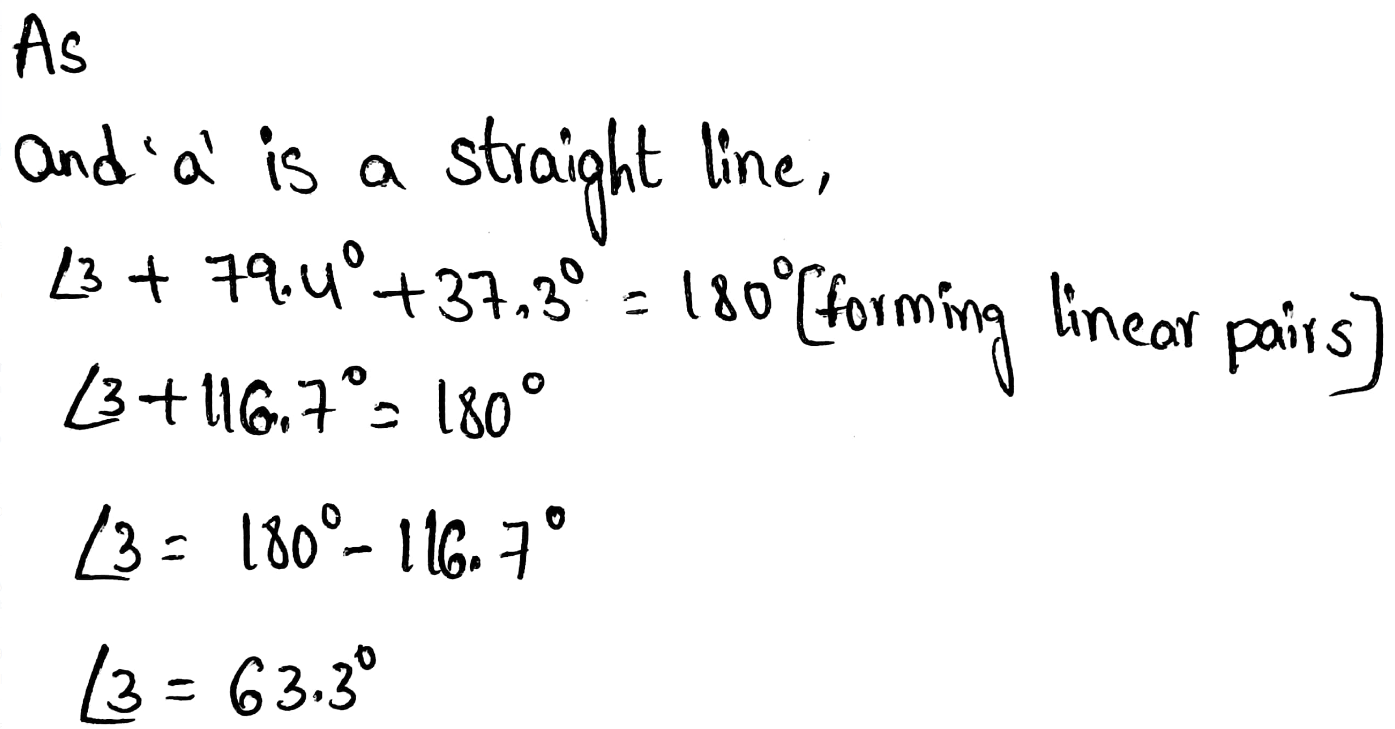 As
and 'a' is a straight line,
∠3 + 79.4° + 37.3° = 180° [forming linear pairs]
∠3 + 116.7° = 180°
∠3 = 180° - 116.7°
∠3 = 63.3°